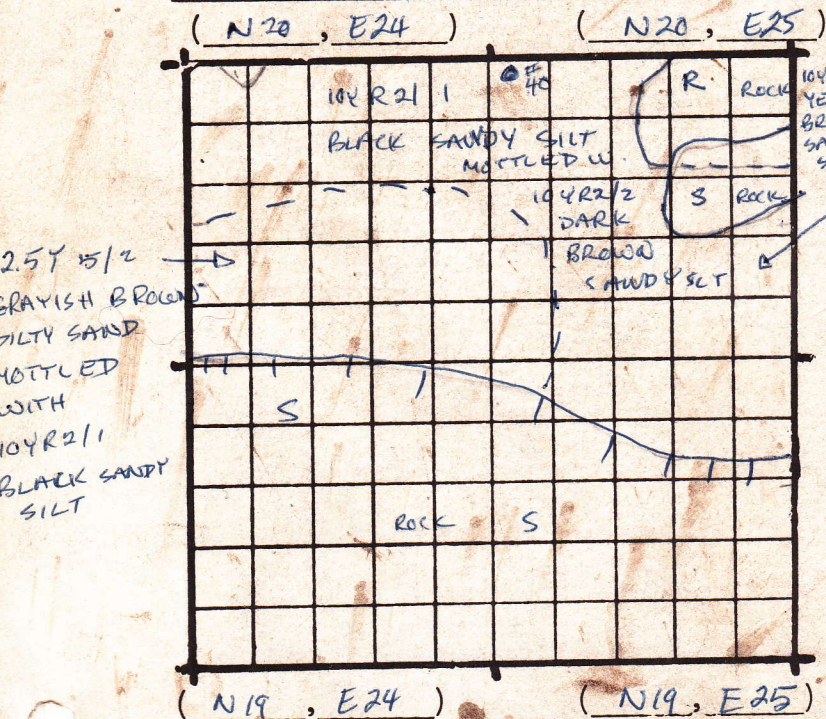 ( N20 , E24 )
( N20 , E25 )
10YR 2/1
#40
R
ROCK
BLACK SANDY SILT
MOTTLED W.
10YR2/2
DARK
BROWN
SANDY SLT
S ROCK
2.5Y 5/2
GRAYISH BROWN
SILTY SAND
MOTTLED
WITH
10YR2/1
BLACK SANDY
SILT
S
ROCK S
( N19 , E24 )
( N19 , E25 )